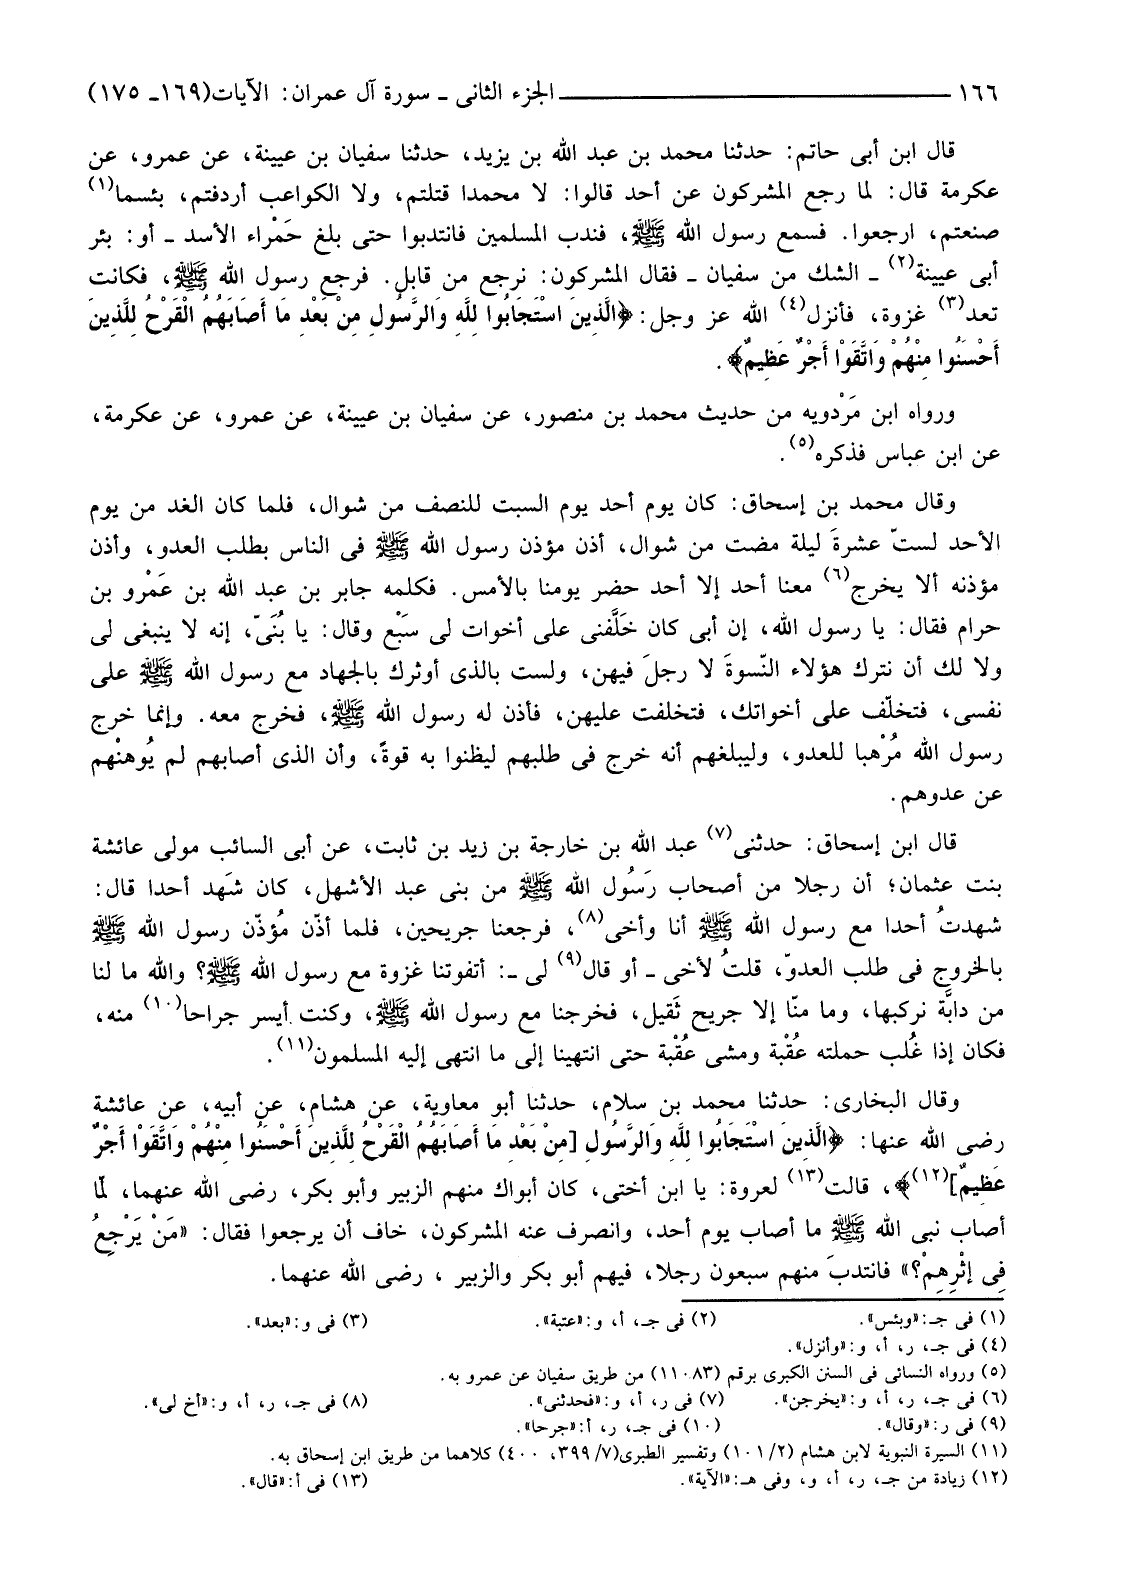 ١٦٦ ـــــــ الجزء الثانى ـ سورة آل عمران: الآيات(١٦٩ـ ١٧٥)
قال ابن أبى حاتم: حدثنا محمد بن عبد الله بن يزيد، حدثنا سفيان بن عيينة، عن عمرو، عن
عكرمة قال: لما رجع المشركون عن أحد قالوا: لا محمدا قتلتم، ولا الكواعب أردفتم، بئسما(١)
صنعتم، ارجعوا. فسمع رسول الله ﷺ، فندب المسلمين فانتدبوا حتى بلغ حَمْراء الأسد ـ أو: بئر
أبى عيينة(٢) ـ الشك من سفيان ـ فقال المشركون: نرجع من قابل. فرجع رسول الله ﷺ، فكانت
تعد(٣) غزوة، فأنزل(٤) الله عز وجل: ﴿الَّذِينَ اسْتَجَابُوا لِلَّهِ وَالرَّسُولِ مِنْ بَعْدِ مَا أَصَابَهُمُ الْقَرْحُ لِلَّذِينَ
أَحْسَنُوا مِنْهُمْ وَاتَّقَوْا أَجْرٌ عَظِيمٌ﴾.
ورواه ابن مَرْدويه من حديث محمد بن منصور، عن سفيان بن عيينة، عن عمرو، عن عكرمة،
عن ابن عباس فذكره(٥).
وقال محمد بن إسحاق: كان يوم أحد يوم السبت للنصف من شوال، فلما كان الغد من يوم
الأحد لستّ عشرةَ ليلة مضت من شوال، أذن مؤذن رسول الله ﷺ فى الناس بطلب العدو، وأذن
مؤذنه ألا يخرج(٦) معنا أحد إلا أحد حضر يومنا بالأمس. فكلمه جابر بن عبد الله بن عَمْرو بن
حرام فقال: يا رسول الله، إن أبى كان خَلَّفنى على أخوات لى سَبْع وقال: يا بُنَىّ، إنه لا ينبغى لى
ولا لك أن نترك هؤلاء النّسوةَ لا رجلَ فيهن، ولست بالذى أوثرك بالجهاد مع رسول الله ﷺ على
نفسى، فتخلّف على أخواتك، فتخلفت عليهن، فأذن له رسول الله ﷺ، فخرج معه. وإنما خرج
رسول الله مُرْهبا للعدو، وليبلغهم أنه خرج فى طلبهم ليظنوا به قوةً، وأن الذى أصابهم لم يُوهنْهم
عن عدوهم.
قال ابن إسحاق: حدثنى(٧) عبد الله بن خارجة بن زيد بن ثابت، عن أبى السائب مولى عائشة
بنت عثمان؛ أن رجلا من أصحاب رَسُول الله ﷺ من بنى عبد الأشهل، كان شَهد أحدا قال:
شهدتُ أحدا مع رسول الله ﷺ أنا وأخى(٨)، فرجعنا جريحين، فلما أذّن مُؤذّن رسول الله ﷺ
بالخروج فى طلب العدوّ، قلتُ لأخى ـ أو قال(٩) لى ـ: أتفوتنا غزوة مع رسول الله ﷺ؟ والله ما لنا
من دابَّة نركبها، وما منّا إلا جريح ثَقيل، فخرجنا مع رسول الله ﷺ، وكنت أيسر جراحا(١٠) منه،
فكان إذا غُلب حملته عُقْبة ومشى عُقْبة حتى انتهينا إلى ما انتهى إليه المسلمون(١١).
وقال البخارى: حدثنا محمد بن سلام، حدثنا أبو معاوية، عن هشام، عن أبيه، عن عائشة
رضى الله عنها: ﴿الَّذِينَ اسْتَجَابُوا لِلَّهِ وَالرَّسُولِ [مِنْ بَعْدِ مَا أَصَابَهُمُ الْقَرْحُ لِلَّذِينَ أَحْسَنُوا مِنْهُمْ وَاتَّقَوْا أَجْرٌ
عَظِيمٌ](١٢)﴾، قالت(١٣) لعروة: يا ابن أختى، كان أبواك منهم الزبير وأبو بكر، رضى الله عنهما، لَمَّا
أصاب نبى الله ﷺ ما أصاب يوم أحد، وانصرف عنه المشركون، خاف أن يرجعوا فقال: «مَنْ يَرْجِعُ
فِى إِثْرِهِمْ؟» فانتدبَ منهم سبعون رجلا، فيهم أبو بكر والزبير ، رضى الله عنهما.
(١) فى جـ: «وبئس». (٢) فى جـ، أ، و: «عتبة». (٣) فى و: «بعد».
(٤) فى جـ، ر، أ، و: «وأنزل».
(٥) ورواه النسائى فى السنن الكبرى برقم (١١٠٨٣) من طريق سفيان عن عمرو به.
(٦) فى جـ، ر، أ، و: «يخرجن». (٧) فى ر، أ، و: «فحدثنى». (٨) فى جـ، ر، أ، و: «أخ لى».
(٩) فى ر: «وقال». (١٠) فى جـ، ر، أ: «جرحا».
(١١) السيرة النبوية لابن هشام (٢/ ١٠١) وتفسير الطبرى(٧/ ٣٩٩، ٤٠٠) كلاهما من طريق ابن إسحاق به.
(١٢) زيادة من جـ، ر، أ، و، وفى هـ: «الآية». (١٣) فى أ: «قال».